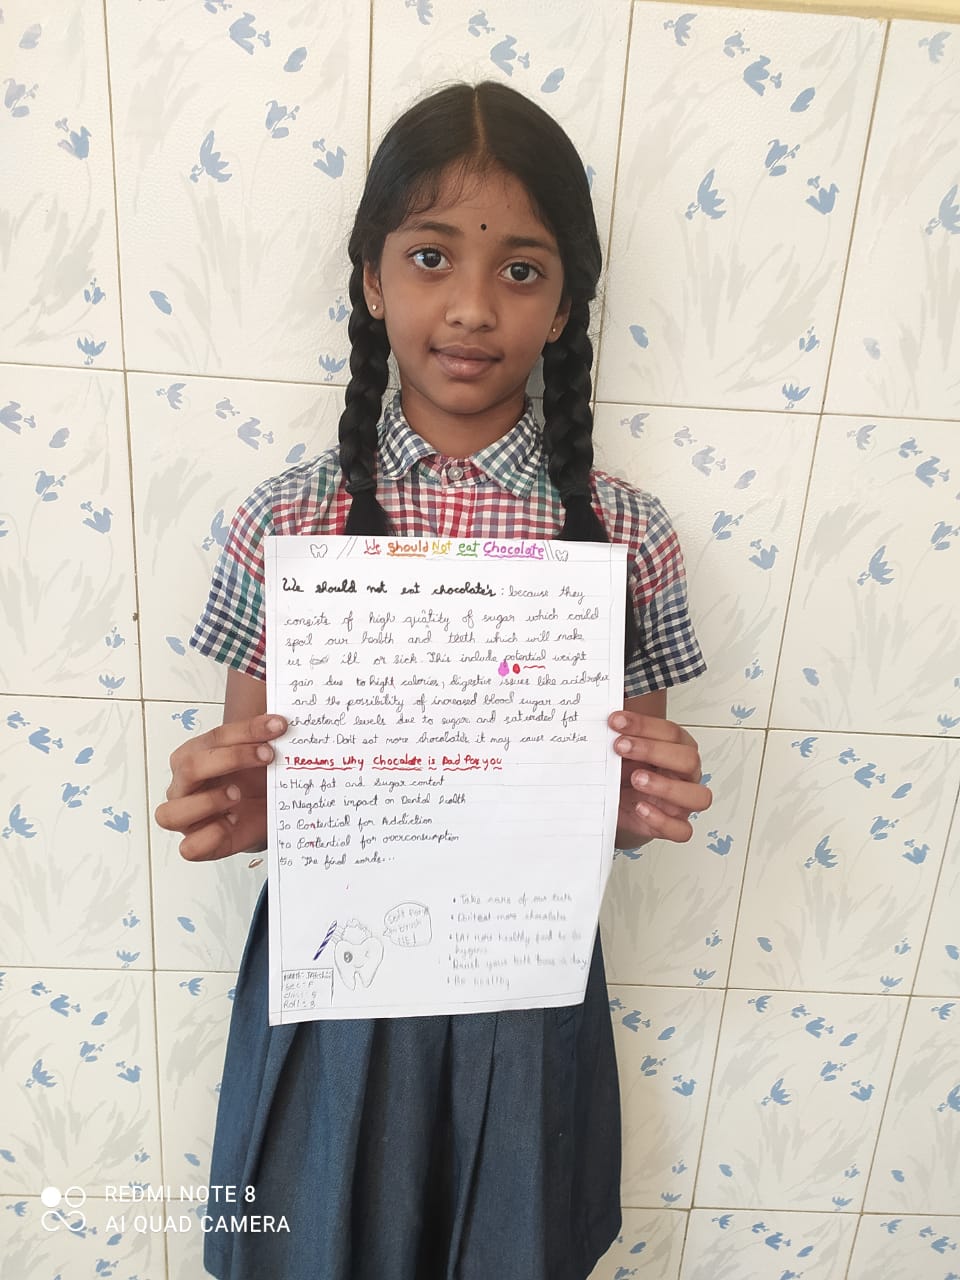 We should Not eat Chocolate
We should not eat chocolate's : because they
consists of high quality of sugar which could
spoil our health and teeth which will make
us ill or sick. This include potential weight
gain due to hight calories, digestive issues like acid reflux
and the possibility of increased blood sugar and
cholesterol levels due to sugar and saturated fat
content. Don't eat more chocolates it may cause cavities
7 Reasons Why Chocolate is Bad for you
1o High fat and Sugar content
2o Negative impact on Dental health
3o Potential for Addiction
4o Potential for overconsumption
5o The final words...
Don't forget
to brush
• Take care of our teeth
• Don't eat more chocolate
• Eat more healthy food to be
hygenic
• Brush your teeth twice a day
• Be healthy
Name:-
Sec:- F
Class: 5
Roll: 3
REDMI NOTE 8
AI QUAD CAMERA